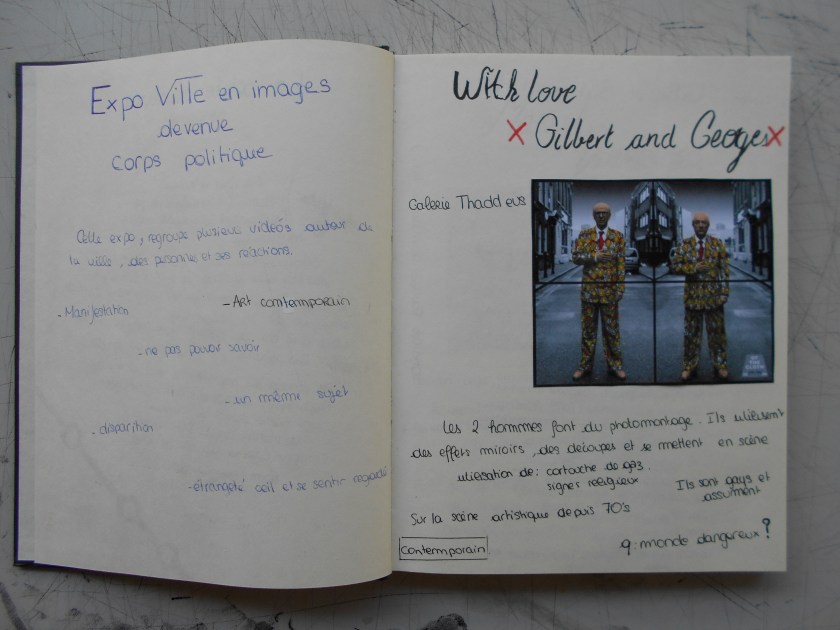 Expo Ville en images
devenue
corps politique
Cette expo, regroupe plusieurs vidéos autour de
la ville, des personnes et ses réactions.
- Manifestation
- Art comtemporain
- ne pas pouvoir savoir
- un même sujet
- disparition
- étrangeté oeil et se sentir regardé
With love
x Gilbert and Georges x
Galerie Thaddeus
Les 2 hommes font du photomontage. Ils utilisent
des effets miroirs, des découpes et se mettent en scène
utilisation de: cartouche de gaz.
signes religieux
Ils sont gays et
assument
Sur la scène artistique depuis 70's
Contemporain
q: monde dangereux?